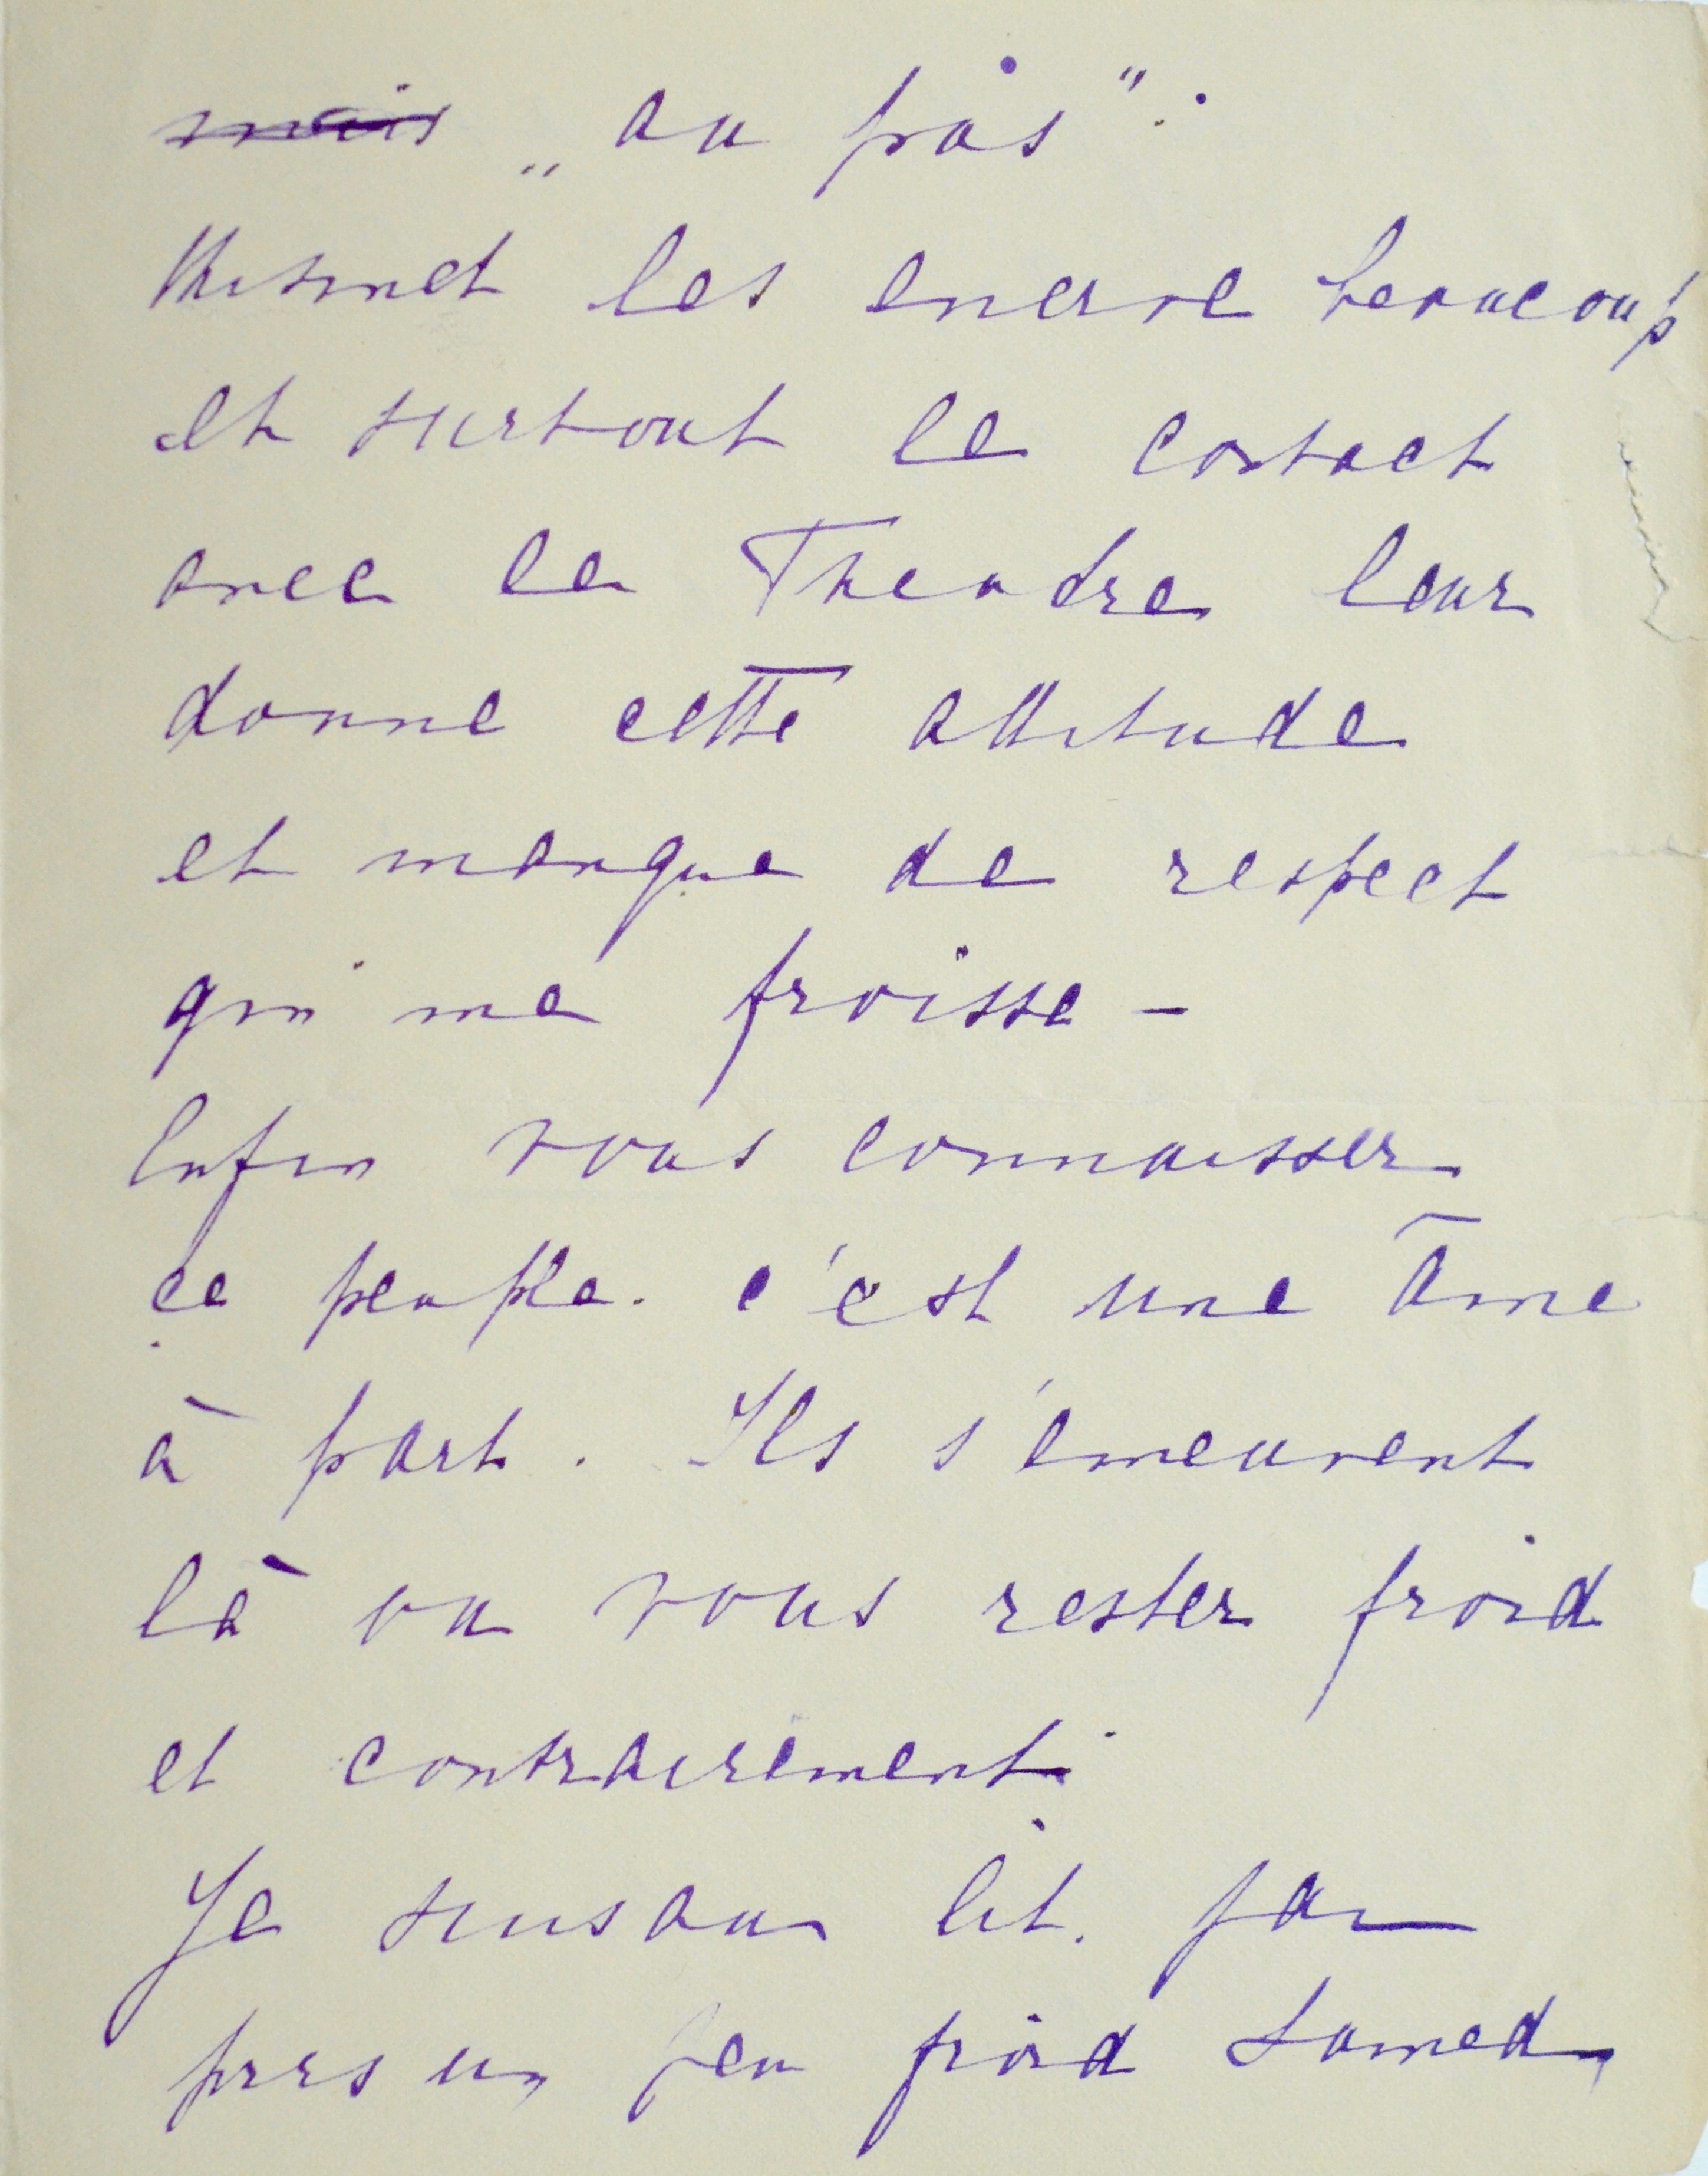 ~~mais~~ „au pas".
les enerve beaucoup
et surtout le contact
avec le Theadre leur
donne cette attitude
et manque de respect
qui me froisse –
Enfin vous connaisser
ce peuple. c'est une âme
à part. Ils s'emeuvent
là ou vous rester froid
et contrairement.
Je suis au lit. j'ai
pris un peu froid samedi